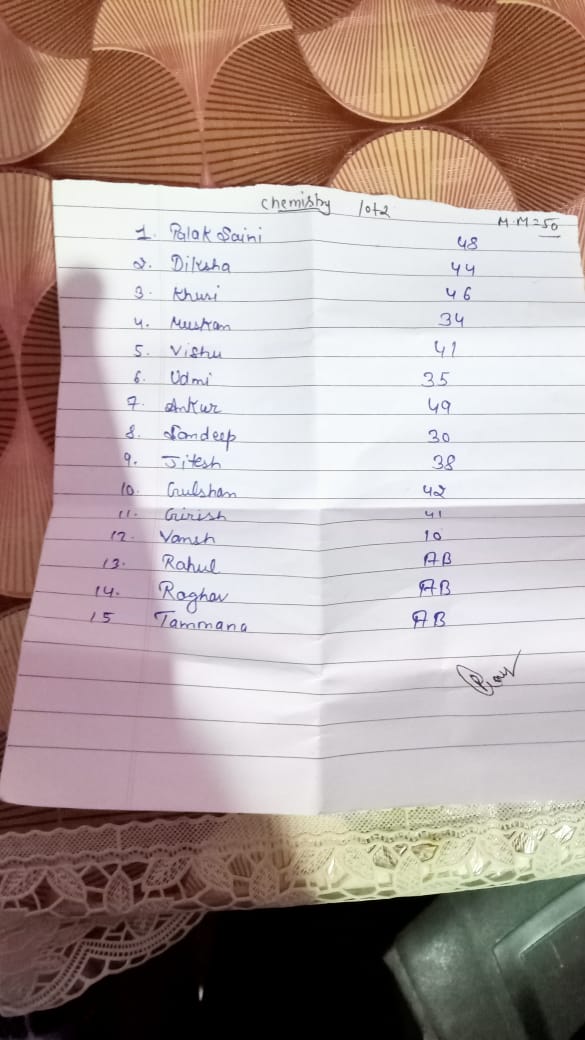 Chemistry 1 of 2 M.M=50
1. Palak Saini 48
2. Diksha 44
3. Khusi 46
4. Muskan 34
5. Vishu 41
6. Udmi 35
7. Ankur 49
8. Sandeep 30
9. Jitesh 38
10. Gulshan 42
11. Girish 41
12. Vansh 10
13. Rahul AB
14. Raghav AB
15 Tammana AB